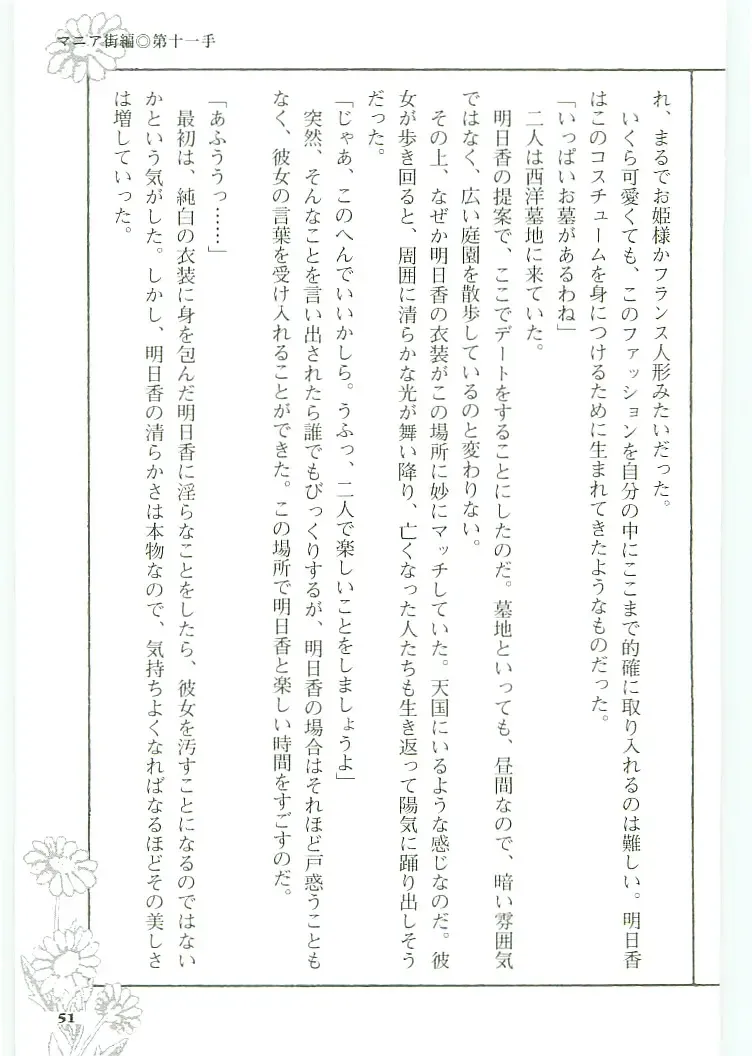 マニア街編◎第十一手
れ、まるでお姫様かフランス人形みたいだった。
いくら可愛くても、このファッションを自分の中にここまで的確に取り入れるのは難しい。明日香
はこのコスチュームを身につけるために生まれてきたようなものだった。
「いっぱいお墓があるわね」
二人は西洋墓地に来ていた。
明日香の提案で、ここでデートをすることにしたのだ。墓地といっても、昼間なので、暗い雰囲気
ではなく、広い庭園を散歩しているのと変わりない。
その上、なぜか明日香の衣装がこの場所に妙にマッチしていた。天国にいるような感じなのだ。彼
女が歩き回ると、周囲に清らかな光が舞い降り、亡くなった人たちも生き返って陽気に踊り出しそう
だった。
「じゃあ、このへんでいいかしら。うふっ、二人で楽しいことをしましょうよ」
突然、そんなことを言い出されたら誰でもびっくりするが、明日香の場合はそれほど戸惑うことも
なく、彼女の言葉を受け入れることができた。この場所で明日香と楽しい時間をすごすのだ。
「あふううっ……」
最初は、純白の衣装に身を包んだ明日香に淫らなことをしたら、彼女を汚すことになるのではない
かという気がした。しかし、明日香の清らかさは本物なので、気持ちよくなればなるほどその美しさ
は増していった。
51